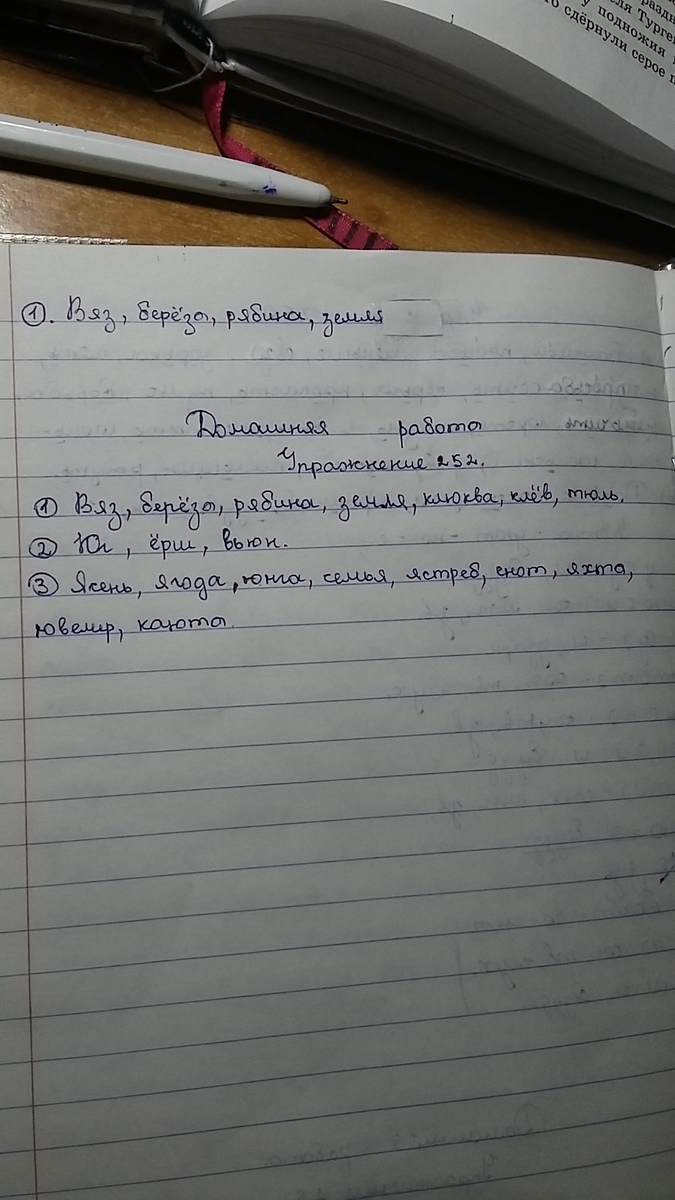 разд
еля Турге
у подножия
о сдёрнули серое п
①. Вяз, берёза, рябина, земля
Домашняя работа
Упражнение 252.
① Вяз, берёза, рябина, земля, клюква, клёв, тюль.
② Юг, ёрш, вьюн.
③ Ясень, ягода, юнга, семья, ястреб, енот, яхта,
ювелир, каюта